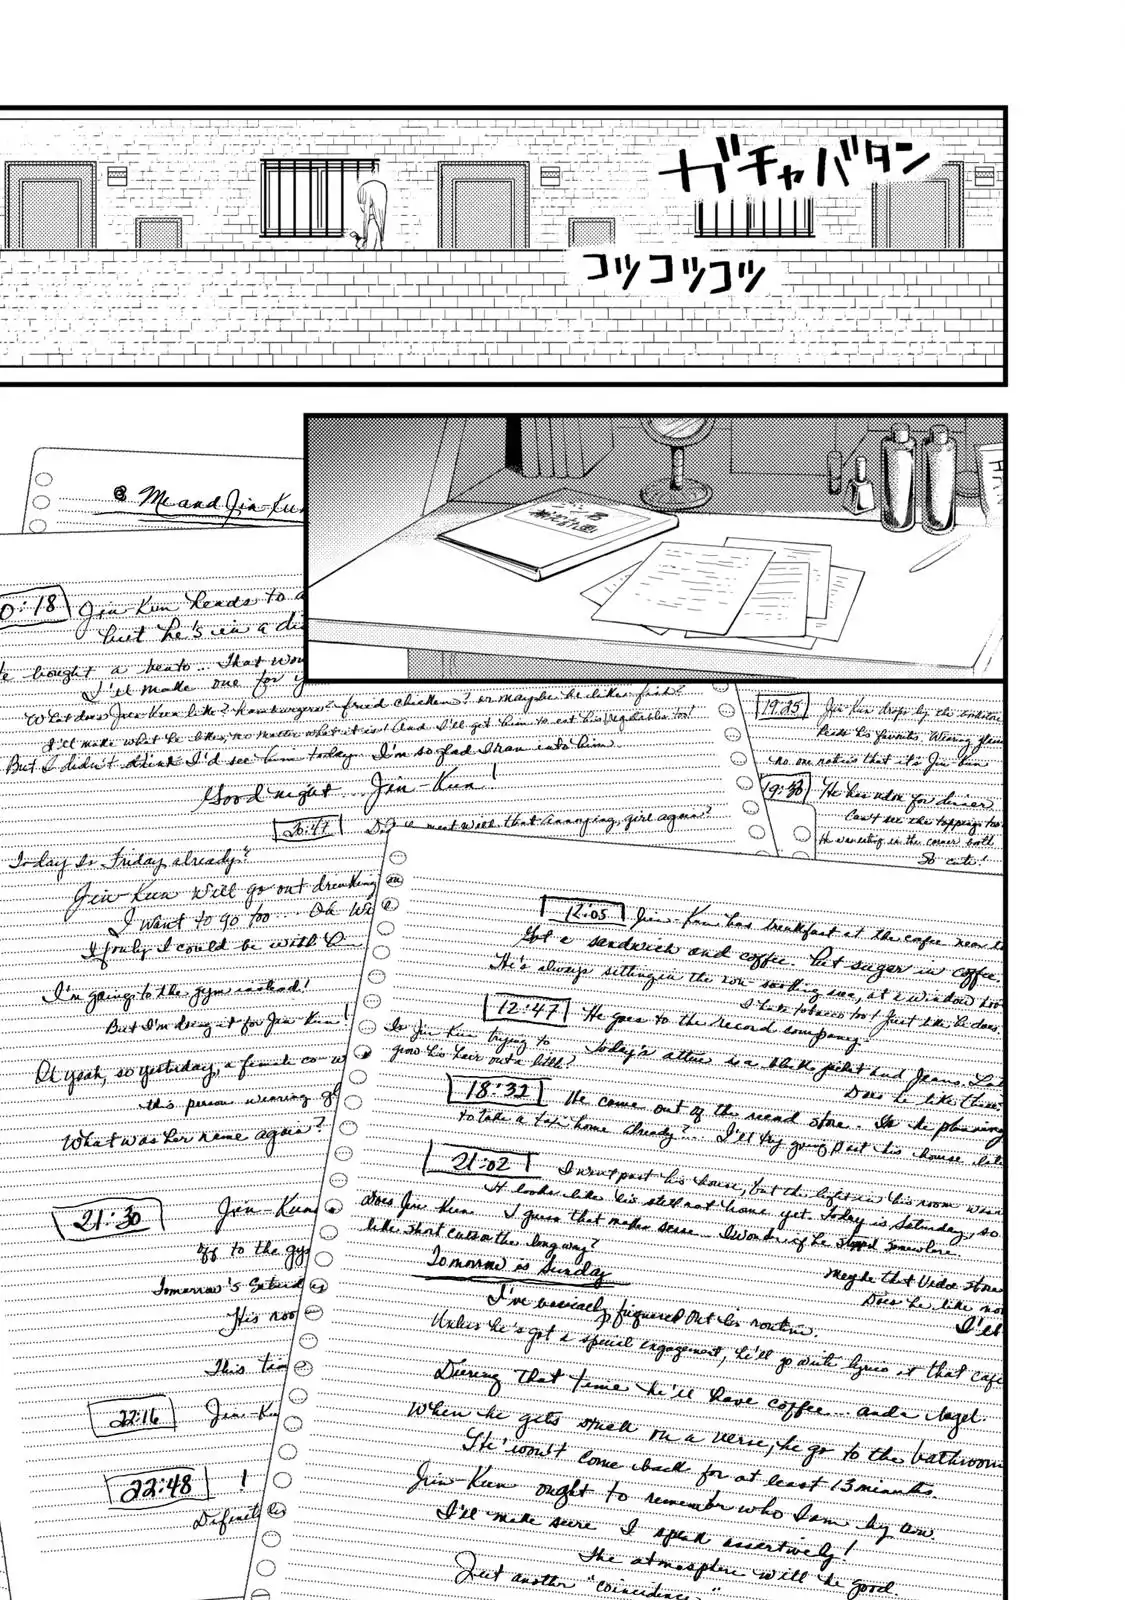 ガチャバタン
コツコツコツ
Me and Jin-Kun
0:18 Jin-Kun heads to a
but he's in a di
e bought a bento... That wou
I'll make one for y
What does Jin-Kun like? Hamburgers? fried chicken? or maybe he likes fish?
I'll make what he likes, no matter what it is! And I'll get him to eat his vegetables too!
But I didn't think I'd see him today. I'm so glad I ran into him
Good night... Jin-Kun!
20:47 Did he meet with that annoying girl again?
Today is Friday already?
Jin-Kun will go out drinking
I want to go too... Oh
I truly I could be with
I'm going to the gym instead!
But I'm doing it for Jin-Kun!
Oh yeah, so yesterday, a female co-w
this person wearing gl
What was her name again?
21:30 Jin-Kun
to the gy
Tomorrow's Saturd
His roo
This tim
22:16 Jin-Ku
22:48 !
Definitely
19:25 Jin-Kun drops by the bookstore
his favorite. Wearing glasses
no one notices that it's Jin-Kun
19:38 He has udon for dinner
Can't see the topping too
He was eating in the corner both
So cute!
12:05 Jin-Kun has breakfast at the cafe near
Got a sandwich and coffee. Put sugar in coffee.
He's always sitting in the non-smoking area, at a window
I hate tobacco too! Just like he does.
12:47 He goes to the record company.
Is Jin-Kun trying to
grow his hair out a little?
Today's attire is a black jacket and jeans.
Does he like these
18:32 He come out of the record store. Is he planning
to take a taxi home already?... I'll try going past his house
21:02 I went past his house, but the light in his room was
It looks like he's still not home yet. Today is Saturday, so
Does Jin-Kun
like short cuts or the long way?
I guess that makes sense. I wonder if he stopped somewhere.
maybe that video store
Does he like mo
I'll
Tomorrow is Sunday
I've basically figured out his routine.
Unless he's got a special engagement, he'll go write lyrics at that cafe
During that time he'll have coffee... and a bagel.
When he gets stuck on a verse, he go to the bathroom
He won't come back for at least 13 minutes.
Jin-Kun ought to remember who I am by now.
I'll make sure I speak assertively!
The atmosphere will be good.
Just another "coincidence"